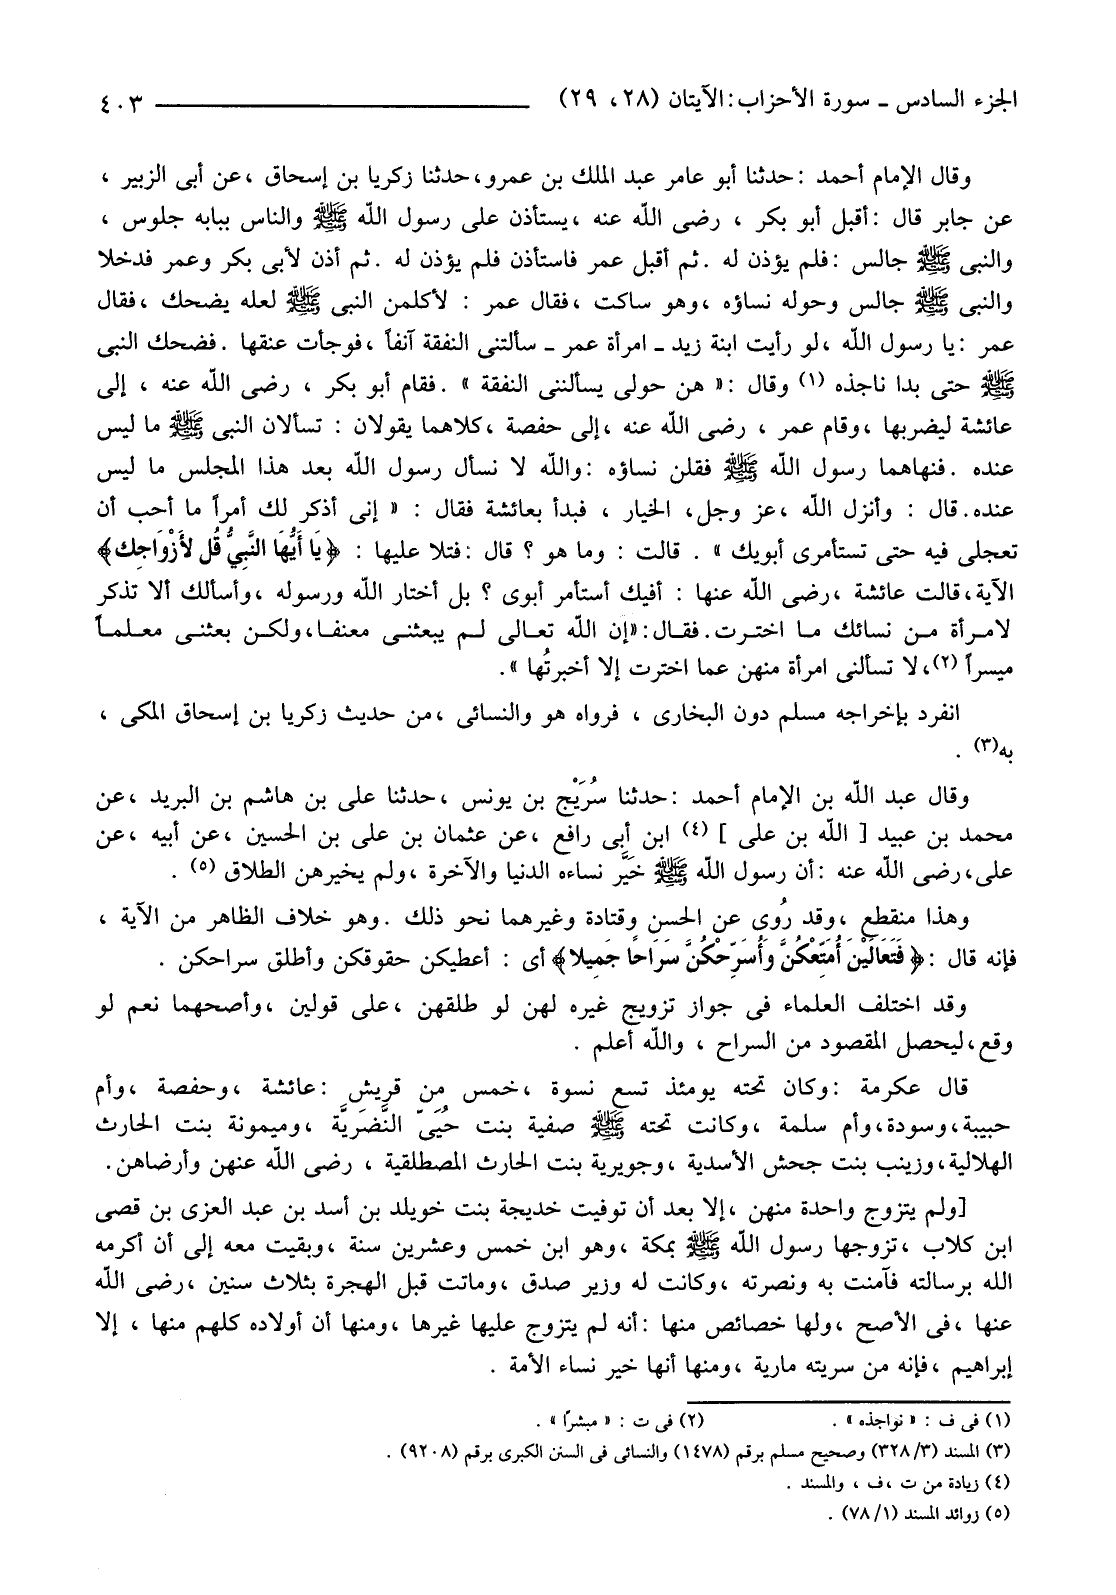 الجزء السادس ــ سورة الأحزاب : الآيتان (٢٨، ٢٩) ٤٠٣
وقال الإمام أحمد : حدثنا أبو عامر عبد الملك بن عمرو، حدثنا زكريا بن إسحاق ، عن أبى الزبير ،
عن جابر قال : أقبل أبو بكر ، رضى الله عنه ، يستأذن على رسول الله ﷺ والناس ببابه جلوس ،
والنبى ﷺ جالس : فلم يؤذن له . ثم أقبل عمر فاستأذن فلم يؤذن له . ثم أذن لأبى بكر وعمر فدخلا
والنبى ﷺ جالس وحوله نساؤه ، وهو ساكت ، فقال عمر : لأكلمن النبى ﷺ لعله يضحك ، فقال
عمر : يا رسول الله ، لو رأيت ابنة زيد ــ امرأة عمر ــ سألتنى النفقة آنفاً ، فوجأت عنقها . فضحك النبى
ﷺ حتى بدا ناجذه (١) وقال : « هن حولى يسألننى النفقة » . فقام أبو بكر ، رضى الله عنه ، إلى
عائشة ليضربها ، وقام عمر ، رضى الله عنه ، إلى حفصة ، كلاهما يقولان : تسألان النبى ﷺ ما ليس
عنده . فنهاهما رسول الله ﷺ فقلن نساؤه : والله لا نسأل رسول الله بعد هذا المجلس ما ليس
عنده. قال : وأنزل الله ، عز وجل، الخيار ، فبدأ بعائشة فقال : « إنى أذكر لك أمراً ما أحب أن
تعجلى فيه حتى تستأمرى أبويك » . قالت : وما هو ؟ قال : فتلا عليها : ﴿ يَا أَيُّهَا النَّبِيُّ قُل لأَزْوَاجِك﴾
الآية، قالت عائشة ، رضى الله عنها : أفيك أستأمر أبوى ؟ بل أختار الله ورسوله ، وأسألك ألا تذكر
لامرأة من نسائك ما اخترت. فقال: «إن الله تعالى لم يبعثنى معنفا، ولكن بعثنى معلماً
ميسراً (٢)، لا تسألنى امرأة منهن عما اخترت إلا أخبرتُها ».
انفرد بإخراجه مسلم دون البخارى ، فرواه هو والنسائى ، من حديث زكريا بن إسحاق المكى ،
به(٣) .
وقال عبد الله بن الإمام أحمد : حدثنا سُرَيْج بن يونس ، حدثنا على بن هاشم بن البريد ، عن
محمد بن عبيد [ الله بن على ] (٤) ابن أبى رافع ، عن عثمان بن على بن الحسين ، عن أبيه ، عن
على، رضى الله عنه : أن رسول الله ﷺ خَيَّر نساءه الدنيا والآخرة ، ولم يخيرهن الطلاق (٥) .
وهذا منقطع ، وقد رُوى عن الحسن وقتادة وغيرهما نحو ذلك . وهو خلاف الظاهر من الآية ،
فإنه قال : ﴿ فَتَعَالَيْنَ أُمَتِّعْكُنَّ وَأُسَرِّحْكُنَّ سَرَاحًا جَمِيلا﴾ أى : أعطيكن حقوقكن وأطلق سراحكن .
وقد اختلف العلماء فى جواز تزويج غيره لهن لو طلقهن ، على قولين ، وأصحهما نعم لو
وقع، ليحصل المقصود من السراح ، والله أعلم .
قال عكرمة : وكان تحته يومئذ تسع نسوة ، خمس من قريش : عائشة ، وحفصة ، وأم
حبيبة، وسودة، وأم سلمة ، وكانت تحته ﷺ صفية بنت حُيَىّ النَّضَريَّة ، وميمونة بنت الحارث
الهلالية، وزينب بنت جحش الأسدية ، وجويرية بنت الحارث المصطلقية ، رضى الله عنهن وأرضاهن.
[ولم يتزوج واحدة منهن ، إلا بعد أن توفيت خديجة بنت خويلد بن أسد بن عبد العزى بن قصى
ابن كلاب ، تزوجها رسول الله ﷺ بمكة ، وهو ابن خمس وعشرين سنة ، وبقيت معه إلى أن أكرمه
الله برسالته فآمنت به ونصرته ، وكانت له وزير صدق ، وماتت قبل الهجرة بثلاث سنين ، رضى الله
عنها ، فى الأصح ، ولها خصائص منها : أنه لم يتزوج عليها غيرها ، ومنها أن أولاده كلهم منها ، إلا
إبراهيم ، فإنه من سريته مارية ، ومنها أنها خير نساء الأمة .
(١) فى ف : « نواجذه » . (٢) فى ت : « مبشرًا » .
(٣) المسند (٣/ ٣٢٨) وصحيح مسلم برقم (١٤٧٨) والنسائى فى السنن الكبرى برقم (٩٢٠٨) .
(٤) زيادة من ت ، ف ، والمسند .
(٥) زوائد المسند (١/ ٧٨) .